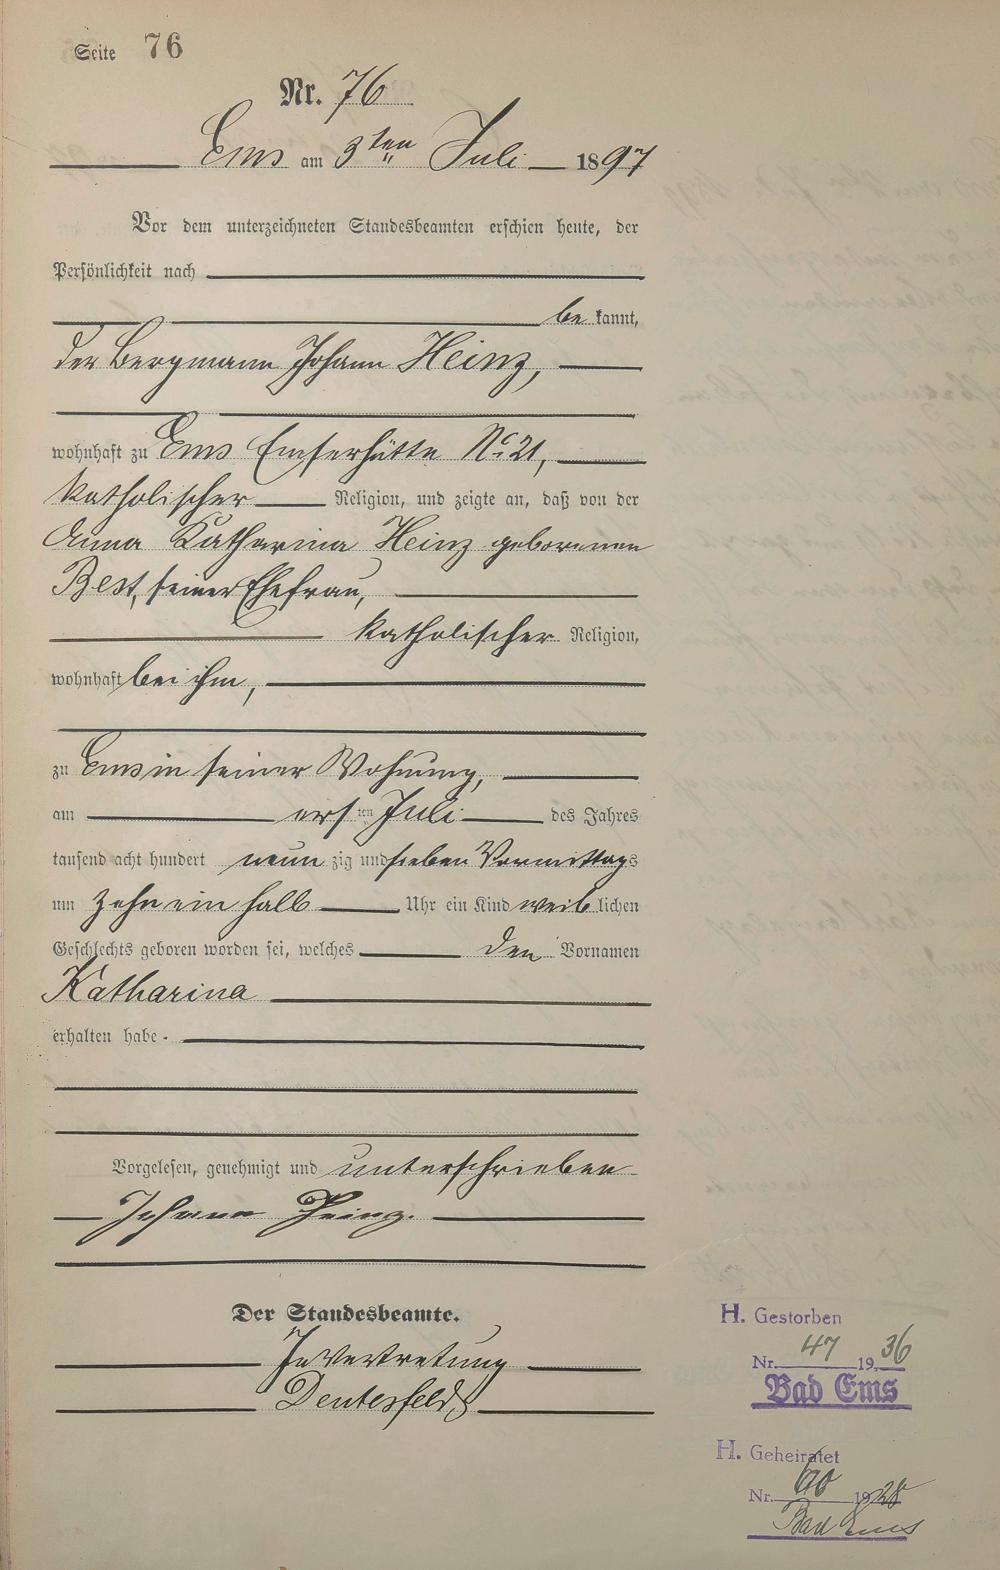 Seite 76
Nr. 76
Ems am 3ten Juli 1897
Vor dem unterzeichneten Standesbeamten erschien heute, der
Persönlichkeit nach
be kannt,
der Bergmann Johann Heinz,
wohnhaft zu Ems Emserhütte No 21,
katholischer Religion, und zeigte an, daß von der
Anna Katharina Heinz geborenen
Best, seiner Ehefrau,
katholischer Religion,
wohnhaft bei ihm,
zu Ems in seiner Wohnung,
am ersten Juli des Jahres
tausend acht hundert neunzig und sieben Vormittags
um zehn ein halb Uhr ein Kind weiblichen
Geschlechts geboren worden sei, welches den Vornamen
Katharina
erhalten habe.
Vorgelesen, genehmigt und unterschrieben
Johann Heinz.
Der Standesbeamte.
In Vertretung
H. Gestorben
Nr. 47 1936
Bad Ems
H. Geheiratet
Nr. 60 1928
Bad Ems